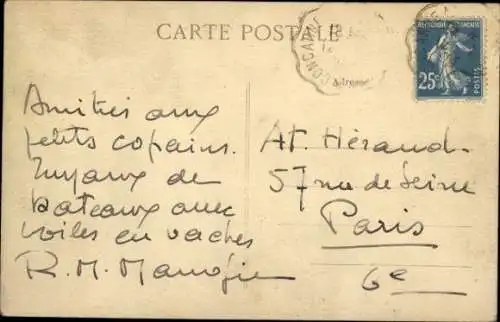 CARTE POSTALE
CONCARN
Adresse
RÉPUBLIQUE FRANÇAISE
25c
POSTES
Amitiés aux
petits copains.
de
bateaux avec
voiles en vaches
R. M.
At. Héraud.
57 rue de Seine
Paris
6e